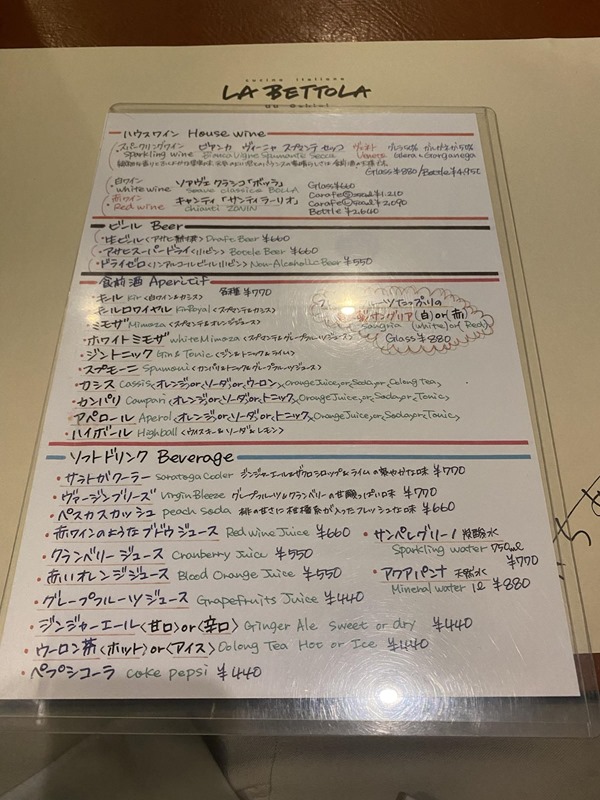 cucina italiana
LA BETTOLA
ハウスワイン House wine
スパークリングワイン ビアンカ ヴィーニャ スプマンテ セッコ
Sparkling wine Bianca Vigna Spumante Secco
Glass ¥880/Bottle ¥4,950
白ワイン ソアヴェ クラシコ「ボッラ」 Glass ¥660
white wine Soave classico BOLLA Carafe Ⓢ 250ml ¥1,210
赤ワイン キャンティ「サンティラーリオ」 Carafe Ⓛ 500ml ¥2,090
Red wine Chianti ZONIN Bottle ¥2,640
ビール Beer
・生ビール〈アサヒ 熟撰〉 Draft Beer ¥660
・アサヒスーパードライ〈小ビン〉 Bottle Beer ¥660
・ドライゼロ〈ノンアルコールビール小ビン〉 Non-Alcoholic Beer ¥550
食前酒 Aperitif
・キール Kir〈白ワイン&カシス〉 各種 ¥770
・キールロワイヤル KirRoyal〈スプマンテ&カシス〉
・ミモザ Mimoza〈スプマンテ&オレンジジュース〉
・ホワイトミモザ White Mimoza〈スプマンテ&グレープフルーツジュース〉
フルーツたっぷりの
サングリア(白)or(赤)
sangria (white)or(Red)
Glass ¥880
・ジントニック Gin & Tonic〈ジン&トニック&ライム〉
・スプモーニ Spumoni〈カンパリ&トニック&グレープフルーツジュース〉
・カシス Cassis〈オレンジorソーダorウーロン〉Orange Juice, or, Soda, or, Oolong Tea,
・カンパリ Campari〈オレンジorソーダorトニック〉Orange Juice, or, Soda, or, Tonic,
・アペロール Aperol〈オレンジorソーダorトニック〉Orange Juice, or, Soda, or, Tonic,
・ハイボール Highball〈ウイスキー&ソーダ&レモン〉
ソフトドリンク Beverage
・サラトガクーラー Saratoga Cooler ジンジャーエール&ザクロシロップ&ライムの爽やかな味 ¥770
・ヴァージンブリーズ Virgin Bleeze グレープフルーツ&クランベリーの甘酸っぱい味 ¥770
・ペスカスカッシュ peach Soda 桃の甘さに柑橘系が入ったフレッシュな味 ¥660
・赤ワインのようなブドウジュース Red wine Juice ¥660
・クランベリージュース Cranberry Juice ¥550
・赤いオレンジジュース Blood Orange Juice ¥550
・グレープフルーツジュース Grapefruits Juice ¥440
・サンペレグリーノ 微炭酸水
Sparkling water 750ml
¥770
・アクアパンナ 天然水
Mineral water 1ℓ ¥880
・ジンジャーエール〈甘口〉or〈辛口〉 Ginger Ale Sweet or dry ¥440
・ウーロン茶〈ホット〉or〈アイス〉 Oolong Tea Hot or Ice ¥440
・ペプシコーラ coke pepsi ¥440